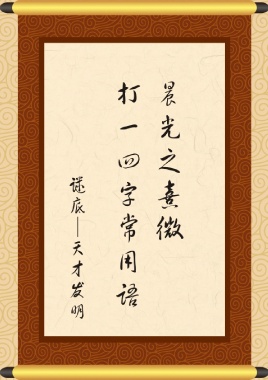 晨光之熹微
打一四字常用语
谜底——天才发明